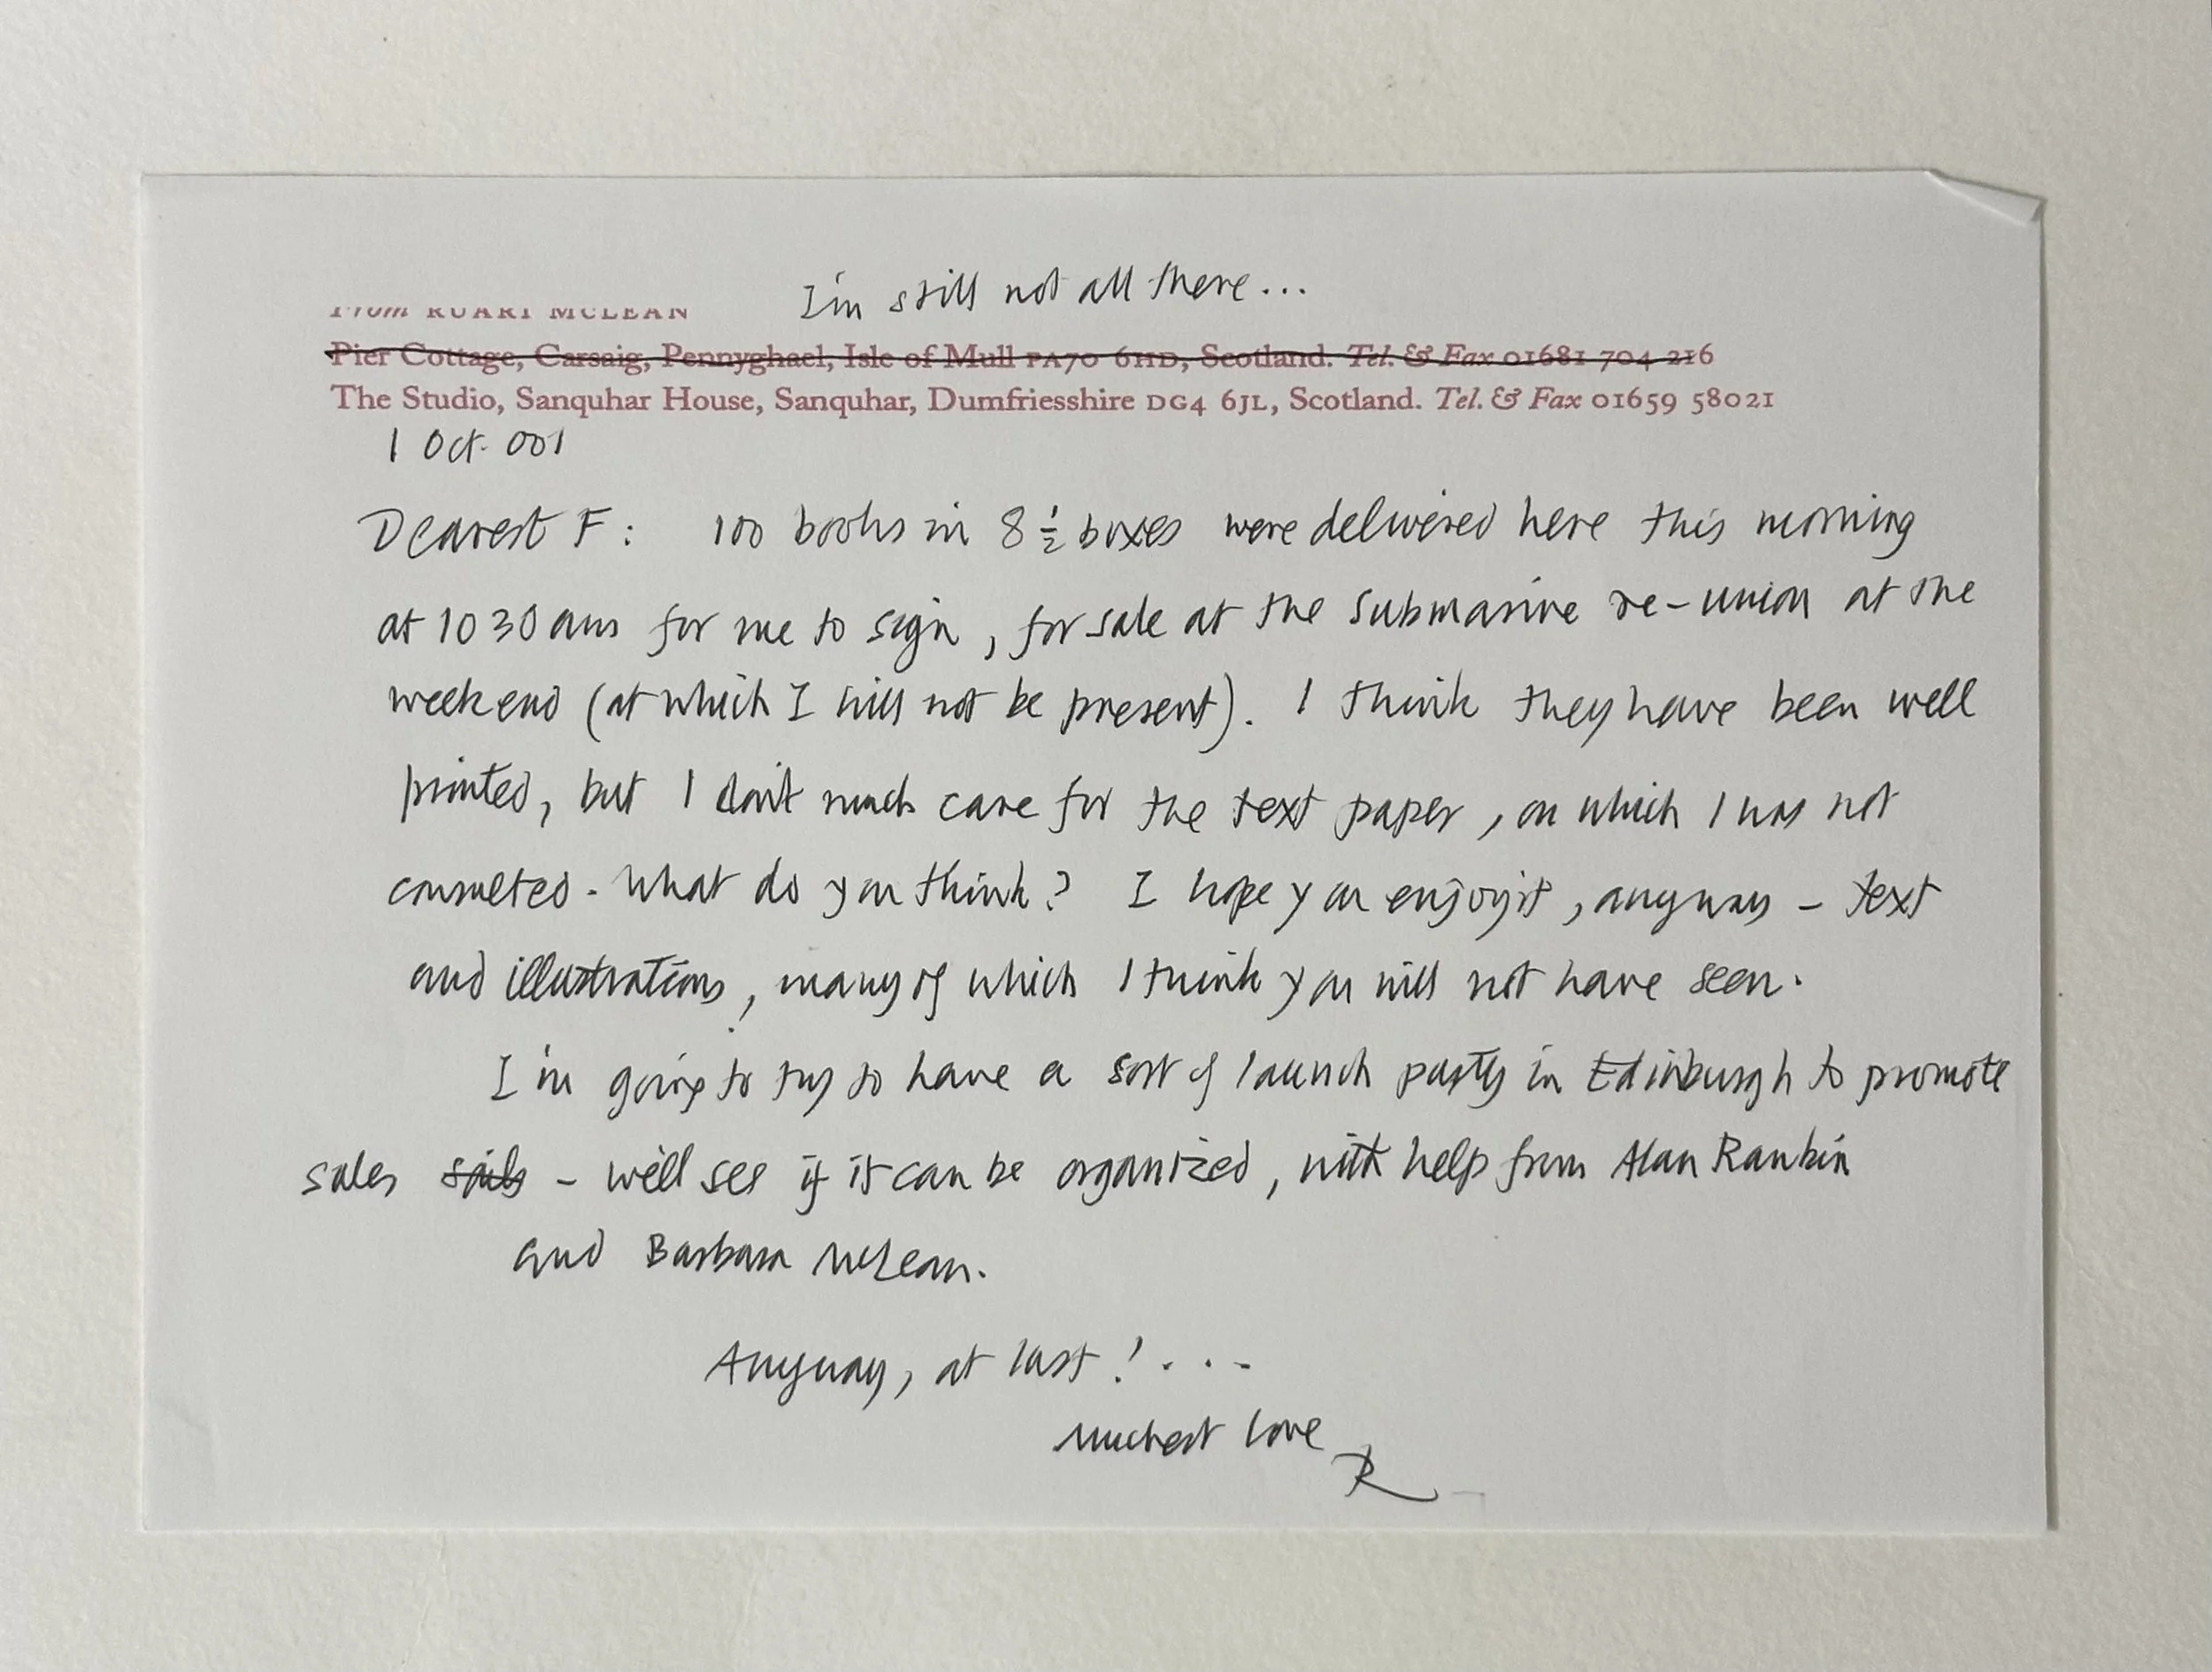 I'm still not all there...
From RUARI MCLEAN
Pier Cottage, Carsaig, Pennyghael, Isle of Mull PA70 6HD, Scotland. Tel. & Fax 01681 704 216
The Studio, Sanquhar House, Sanquhar, Dumfriesshire DG4 6JL, Scotland. Tel. & Fax 01659 58021
1 Oct. 001
Dearest F: 100 books in 8 ½ boxes were delivered here this morning
at 10 30 am for me to sign, for sale at the submarine re-union at the
weekend (at which I will not be present). I think they have been well
printed, but I don't much care for the text paper, on which I was not
consulted. What do you think? I hope you enjoy it, anyway – text
and illustrations, many of which I think you will not have seen.
I'm going to try to have a sort of launch party in Edinburgh to promote
sales sails – we'll see if it can be organized, with help from Alan Rankin
and Barbara McLean.
Anyway, at last! . . .
Muchest love
R